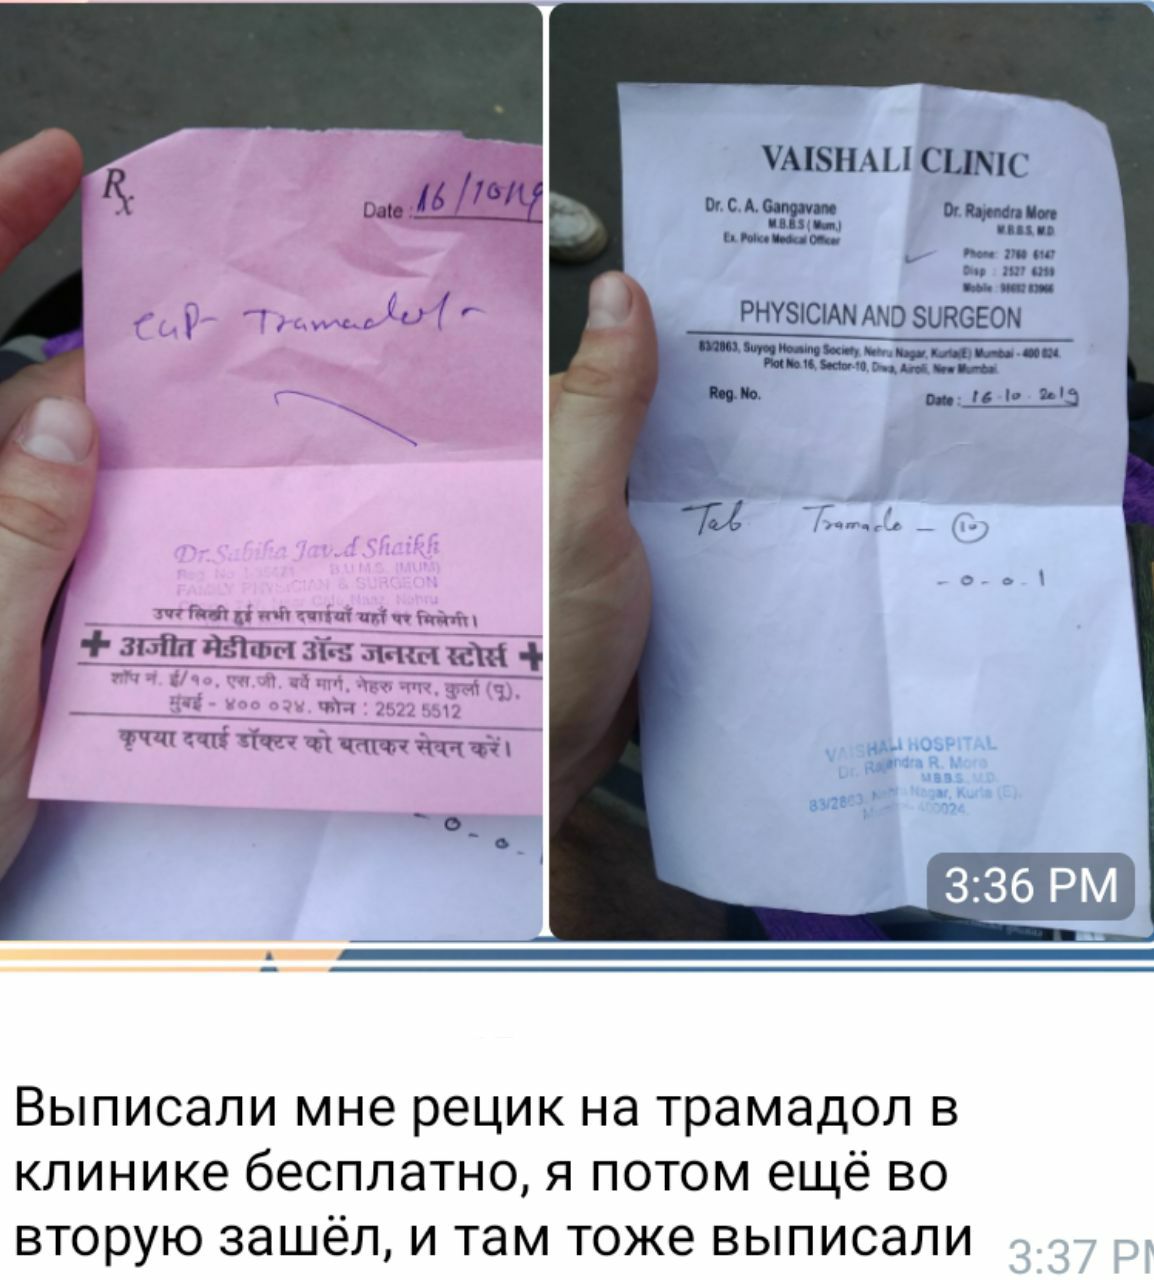 Rx
Date: 16/10/19
Cap Tramadol
Dr. Sabiha Javed Shaikh
B.U.M.S. (MUM)
FAMILY PHYSICIAN & SURGEON
उपर लिखी हुई सभी दवाईयाँ यहाँ पर मिलेगी।
+ अजीत मेडीकल ॲन्ड जनरल स्टोर्स +
शॉप नं. ई/१०, एस.जी. बर्वे मार्ग, नेहरु नगर, कुर्ला (पू),
मुंबई - ४०० ०२४. फोन : 2522 5512
कृपया दवाई डॉक्टर को बताकर सेवन करें।
- 0 - 0 -
VAISHALI CLINIC
Dr. C. A. Gangavane
M.B.B.S (Mum.)
Ex. Police Medical Officer
Dr. Rajendra More
M.B.B.S, M.D.
Phone: 2760 6147
Disp : 2527 6259
Mobile : 98692 83966
PHYSICIAN AND SURGEON
83/2863, Suyog Housing Society, Nehru Nagar, Kurla(E) Mumbai - 400 024.
Plot No.16, Sector-10, Diwa, Airoli, New Mumbai.
Reg. No.
Date : 16-10-2019
Tab Tramado - 10
- 0 - 0 - 1
VAISHALI HOSPITAL
Dr. Rajendra R. More
M.B.B.S., M.D.
83/2863, Nehru Nagar, Kurla (E).
400024.
3:36 PM
Выписали мне рецик на трамадол в
клинике бесплатно, я потом ещё во
вторую зашёл, и там тоже выписали
3:37 PM